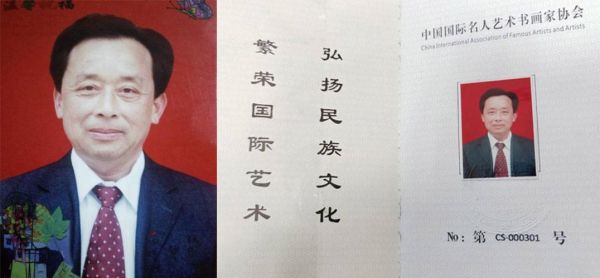 温馨祝福
弘扬民族文化
繁荣国际艺术
中国国际名人艺术书画家协会
China International Association of Famous Artists and Artists
No：第 CS-000301 号